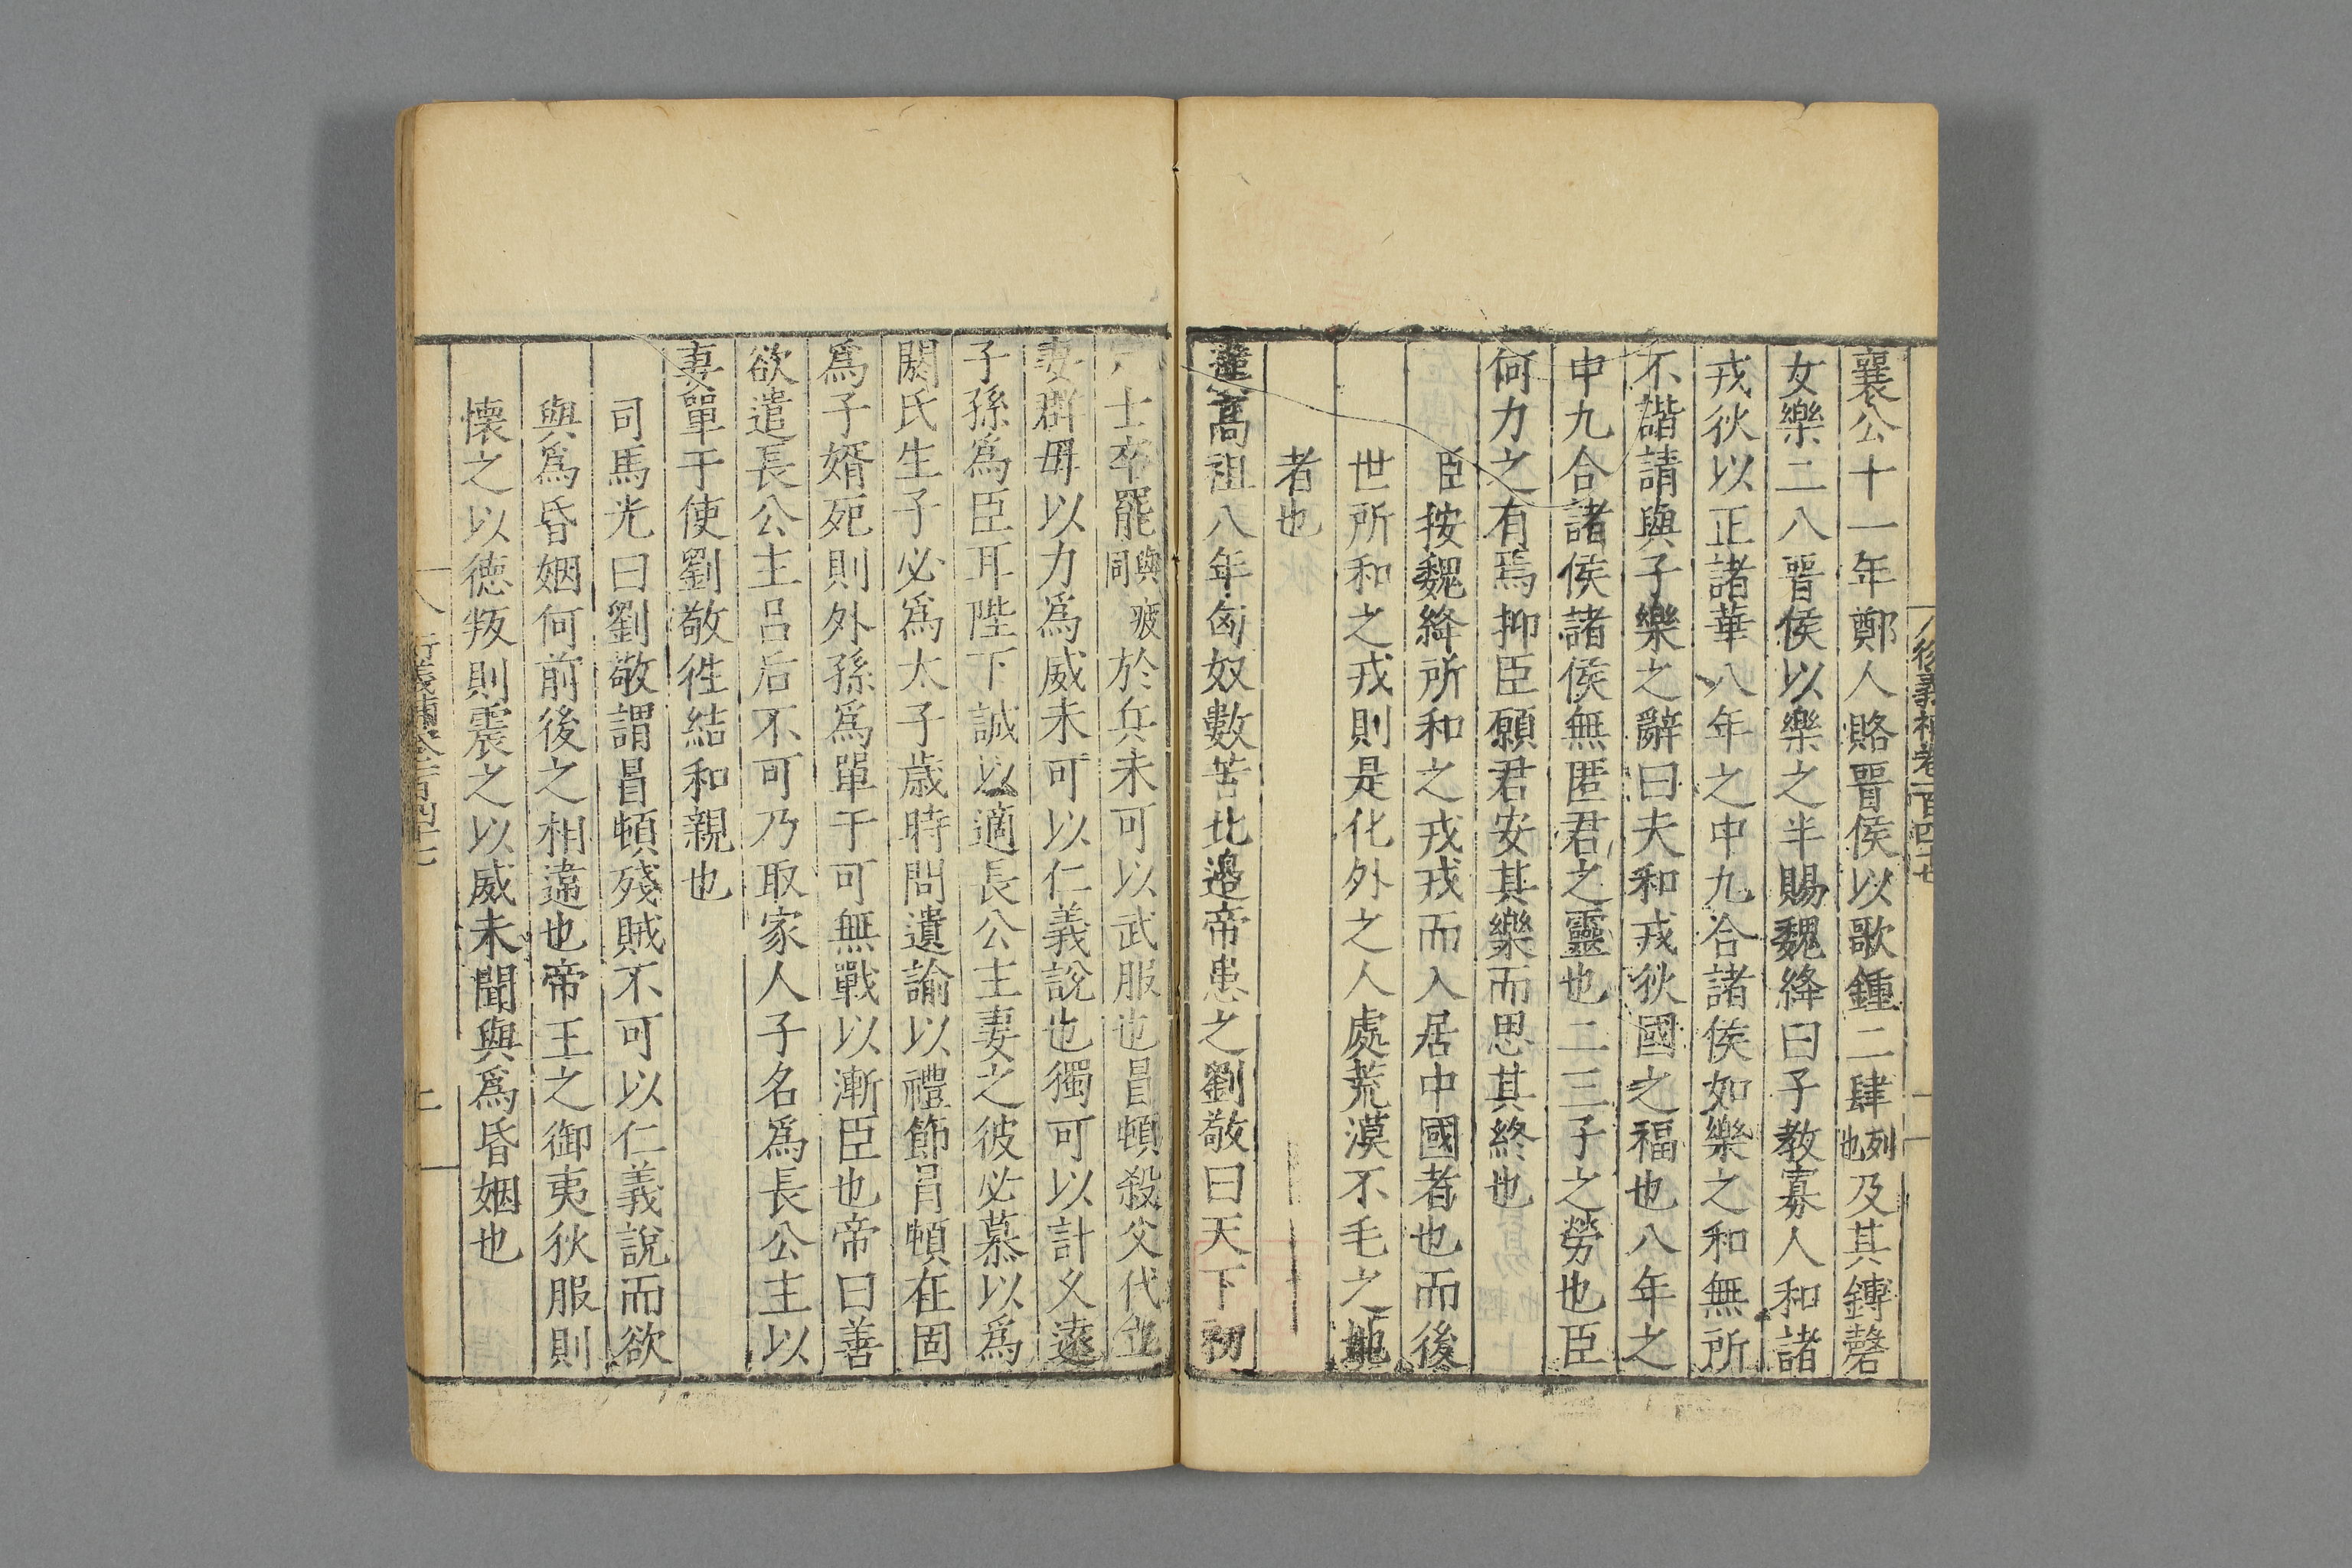 襄公十一年鄭人賂晋侯以歌鍾二肆列也及其鏄磬
女樂二八晋侯以樂之半賜魏絳曰子教寡人和諸
戎狄以正諸華八年之中九合諸侯如樂之和無所
不諧請與子樂之辭曰夫和戎狄國之福也八年之
中九合諸侯諸侯無匿君之靈也二三子之勞也臣
何力之有焉抑臣願君安其樂而思其終也
臣按魏絳所和之戎戎而入居中國者也而後
世所和之戎則是化外之人處荒漠不毛之地
者也
漢高祖八年匈奴數苦北邉帝患之劉敬曰天下初
士卒罷與疲同於兵未可以武服也冒頓殺父代立
妻群母以力爲威未可以仁義說也獨可以計久遠
子孫爲臣耳陛下誠以適長公主妻之彼必慕以爲
閼氏生子必爲太子歲時問遺諭以禮節冐頓在固
爲子婿死則外孫爲單于可無戰以漸臣也帝曰善
欲遣長公主呂后不可乃取家人子名爲長公主以
妻單于使劉敬徃結和親也
司馬光曰劉敬謂冒頓殘賊不可以仁義說而欲
與爲昏姻何前後之相違也帝王之御夷狄服則
懷之以德叛則震之以威未聞與爲昏姻也